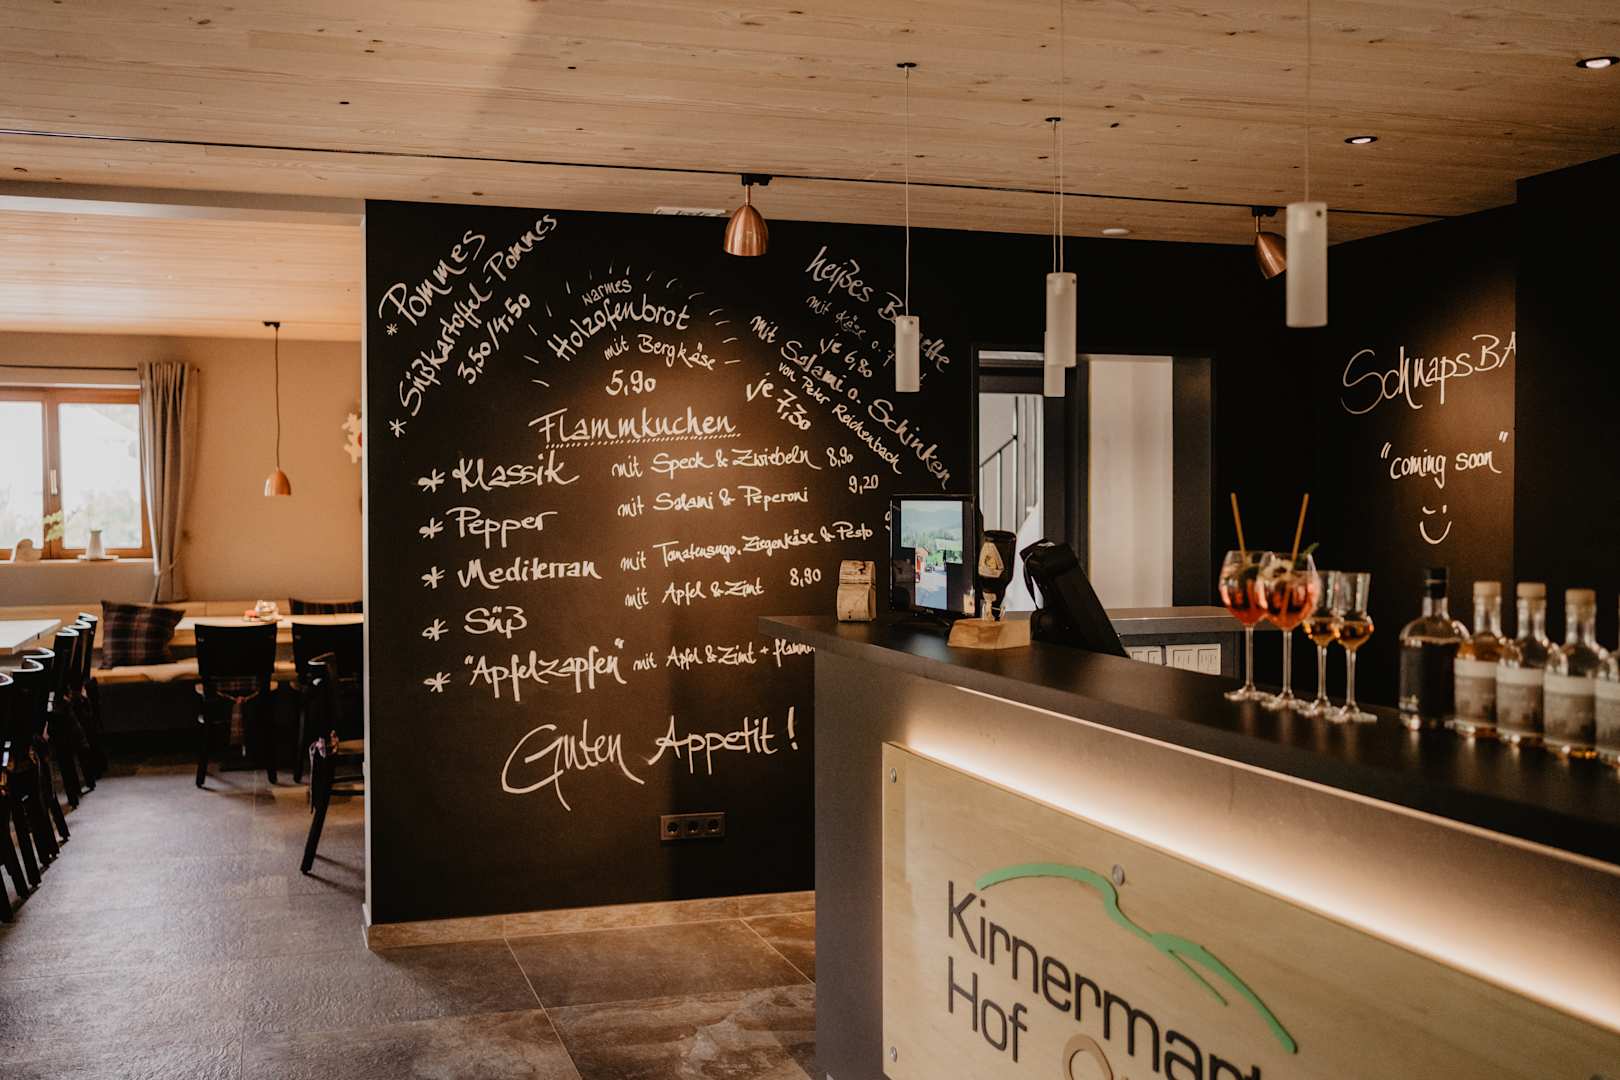 * Pommes
* Süßkartoffel-Pommes
3,50/4,50
warmes
Holzofenbrot
mit Bergkäse
5,90
heißes
mit Käse o.
je 6,80
mit Salami o. Schinken
von Peter Reichenbach
je 7,30
Flammkuchen
* Klassik mit Speck & Zwiebeln 8,90
* Pepper mit Salami & Peperoni 9,20
* Mediterran mit Tomatensugo, Ziegenkäse & Pesto
* Süß mit Apfel & Zimt 8,90
* "Apfelzapfen" mit Apfel & Zimt +
Guten Appetit!
SchnapsBA
"coming soon"
Kirnermart
Hof